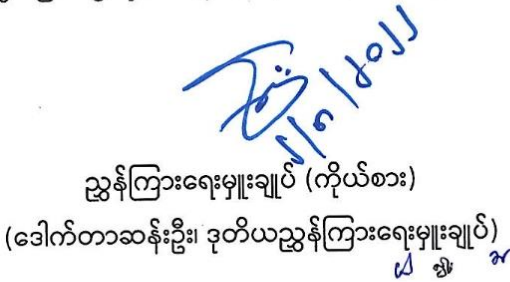 ၂/၈/၂၀၂၂
ညွှန်ကြားရေးမှူးချုပ် (ကိုယ်စား)
(ဒေါက်တာဆန်းဦး၊ ဒုတိယညွှန်ကြားရေးမှူးချုပ်)